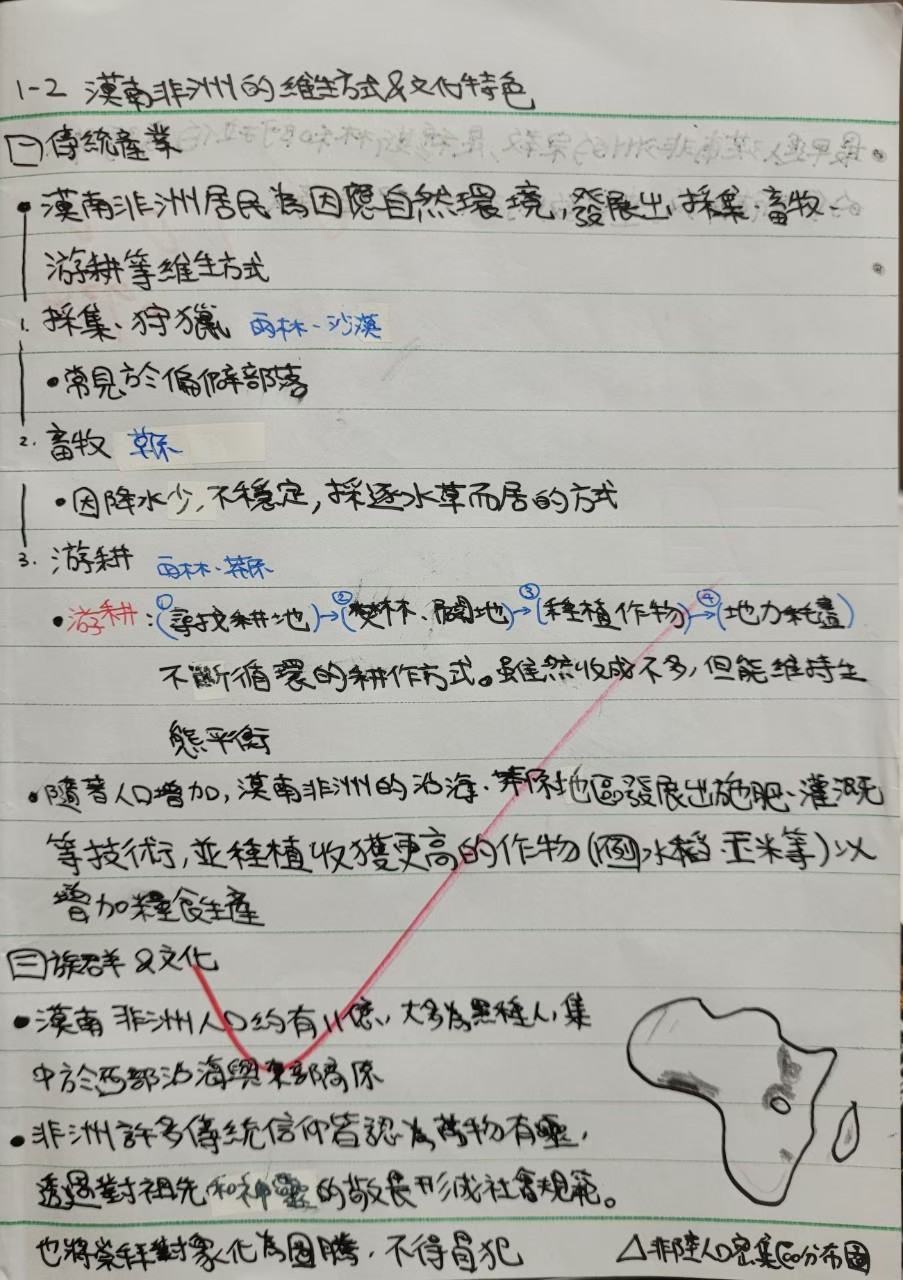 1-2 漠南非洲的維生方式&文化特色
一 傳統產業
• 漠南非洲居民為因應自然環境,發展出採集、畜牧、
游耕等維生方式
1. 採集、狩獵 雨林、沙漠
• 常見於偏僻部落
2. 畜牧 草原
• 因降水少,不穩定,採逐水草而居的方式
3. 游耕 雨林、莽原
• 游耕:①(尋找耕地)→②(焚林、闢地)→③(種植作物)→④(地力耗盡)
不斷循環的耕作方式。雖然收成不多,但能維持生
態平衡
• 隨著人口增加,漠南非洲的沿海、莽原地區發展出施肥、灌溉
等技術,並種植收獲更高的作物(例水稻、玉米等)以
增加糧食生產
三 族群&文化
• 漠南非洲人口約有11億,大多為黑種人,集
中於西部沿海與東部高原
• 非洲許多傳統信仰皆認為萬物有靈,
透過對祖先和神靈的敬畏形成社會規範。
也將崇拜對象化為圖騰,不得冒犯
△非陸人口密集區分布圖